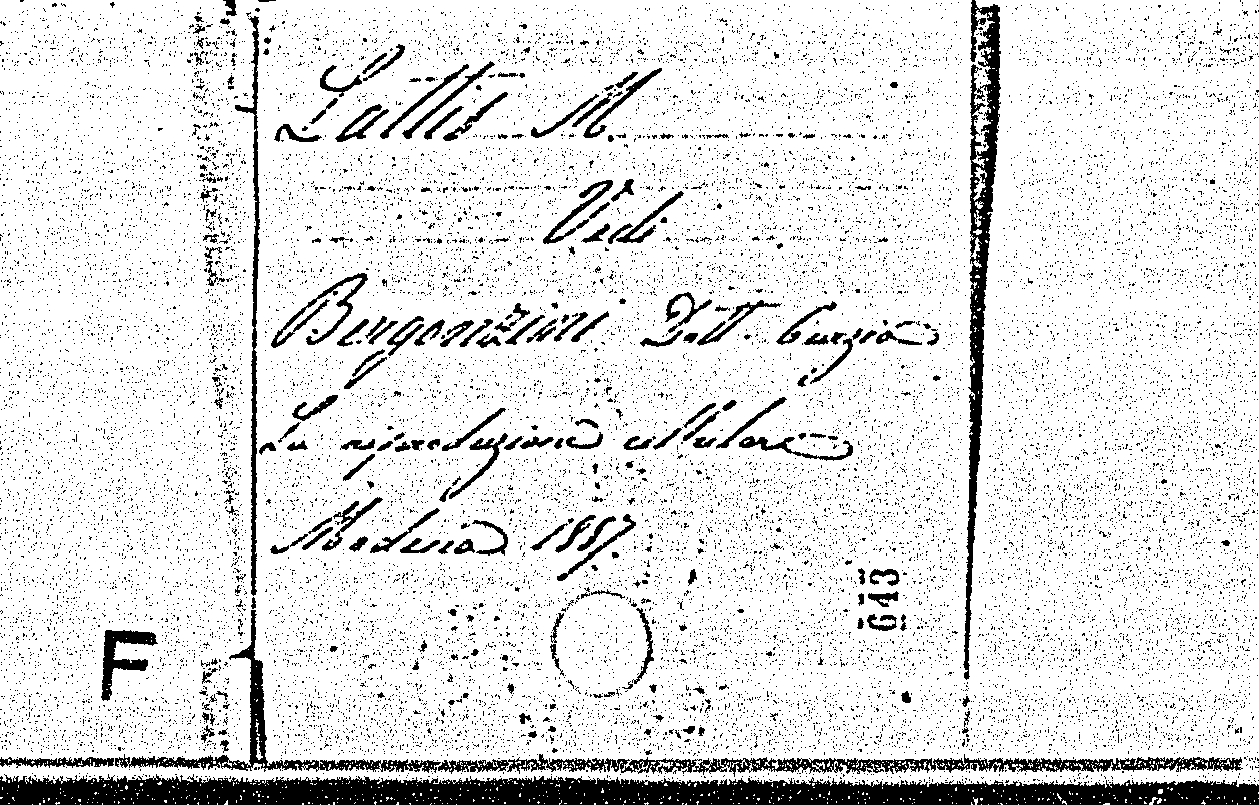 Lattis M.
Vedi
Bergonzini Dott. Curzio
La riproduzione cellulare
Modena 1887.
643
F